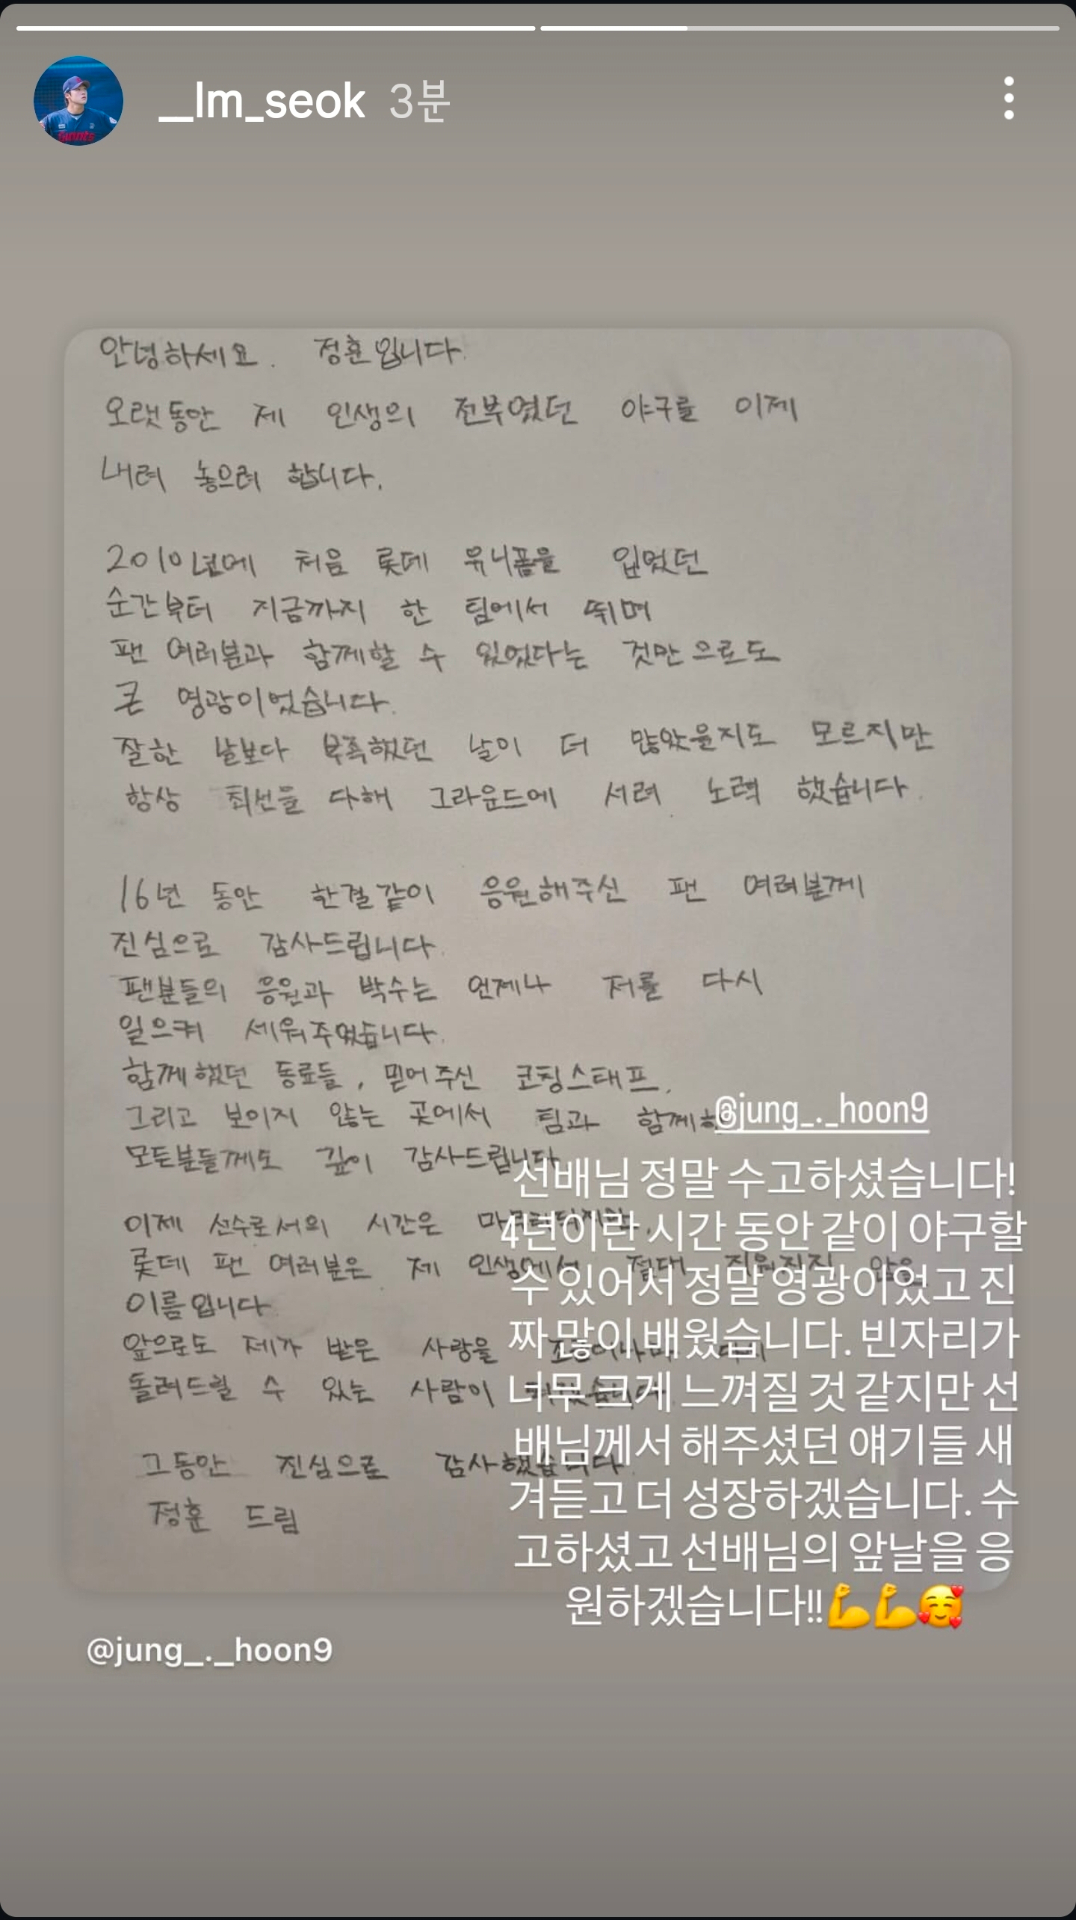 __lm_seok 3분
안녕하세요. 정훈입니다.
오랫동안 제 인생의 전부였던 야구를 이제
내려 놓으려 합니다.
2010년에 처음 롯데 유니폼을 입었던
순간부터 지금까지 한 팀에서 뛰며
팬 여러분과 함께할 수 있었다는 것만으로도
큰 영광이었습니다.
잘한 날보다 부족했던 날이 더 많았을지도 모르지만
항상 최선을 다해 그라운드에 서려 노력 했습니다.
16년 동안 한결같이 응원해주신 팬 여러분께
진심으로 감사드립니다.
팬분들의 응원과 박수는 언제나 저를 다시
일으켜 세워주었습니다.
함께했던 동료들, 믿어주신 코칭스태프,
그리고 보이지 않는 곳에서 팀과 함께
모든분들께도 깊이 감사드립니다
이제 선수로서의 시간은
롯데 팬 여러분은 제 인생에서 절대 않을
이름입니다
앞으로도 제가 받은 사랑을
돌려드릴 수 있는 사람이
그동안 진심으로 감사했습니다.
정훈 드림
@jung_._hoon9
선배님 정말 수고하셨습니다!
4년이란 시간 동안 같이 야구할
수 있어서 정말 영광이었고 진
짜 많이 배웠습니다. 빈자리가
너무 크게 느껴질 것 같지만 선
배님께서 해주셨던 얘기들 새
겨듣고 더 성장하겠습니다. 수
고하셨고 선배님의 앞날을 응
원하겠습니다!!💪💪🥰
@jung_._hoon9